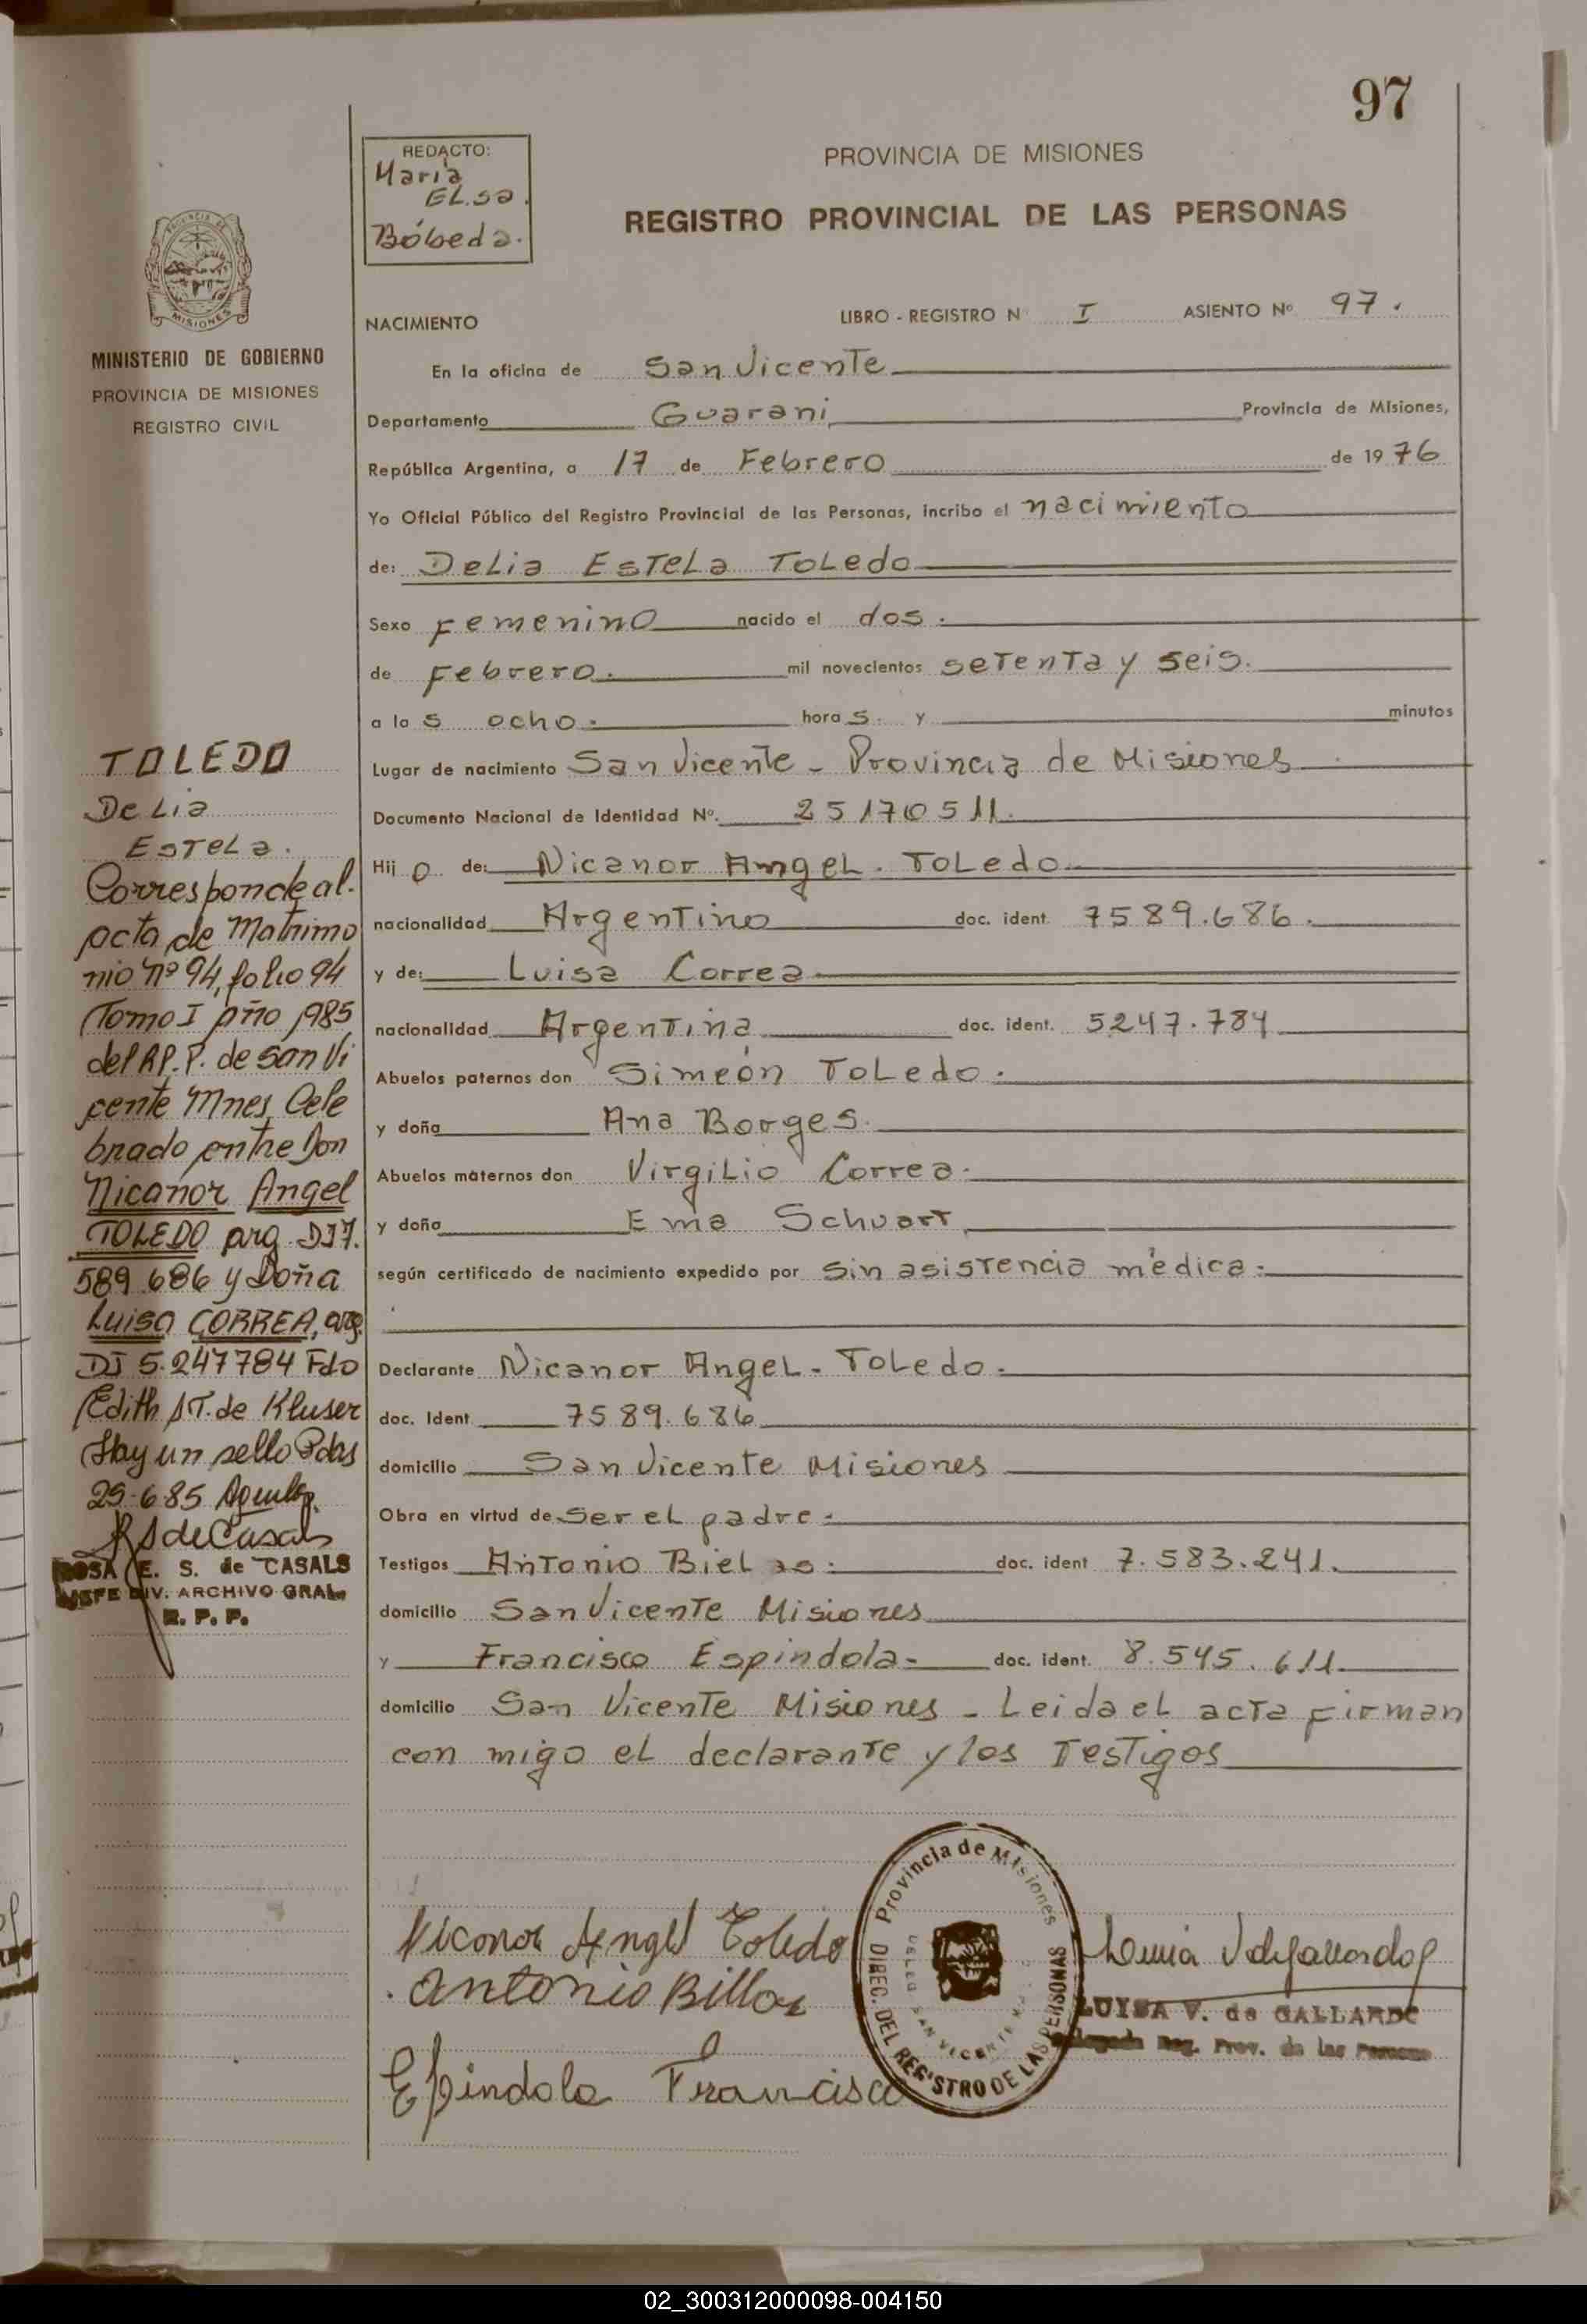 97
REDACTO:
Maria
ELsa.
Bóbeda.
PROVINCIA DE MISIONES
REGISTRO PROVINCIAL DE LAS PERSONAS
MISIONES
MINISTERIO DE GOBIERNO
PROVINCIA DE MISIONES
REGISTRO CIVIL
NACIMIENTO LIBRO - REGISTRO N° I ASIENTO N° 97.
En la oficina de San Vicente
Departamento Guarani Provincia de Misiones,
República Argentina, a 17 de Febrero de 1976
Yo Oficial Público del Registro Provincial de las Personas, incribo el nacimiento
de: Delia Estela Toledo
Sexo Femenino nacido el dos.
de Febrero. mil novecientos setenta y seis.
a las ocho. horas. y minutos
Lugar de nacimiento San Vicente - Provincia de Misiones
Documento Nacional de Identidad N°. 25170511.
Hijo de: Nicanor Angel. Toledo
nacionalidad Argentino doc. ident. 7589.686.
y de: Luisa Correa
nacionalidad Argentina doc. ident. 5247.784
Abuelos paternos don Simeón Toledo.
y doña Ana Borges.
Abuelos maternos don Virgilio Correa.
y doña Ema Schuart
según certificado de nacimiento expedido por sin asistencia médica.
Declarante Nicanor Angel - Toledo.
doc. Ident 7589.686
domicilio San Vicente Misiones
Obra en virtud de ser el padre.
Testigos Antonio Bielas. doc. ident 7.583.241.
domicilio San Vicente Misiones
y Francisco Espindola- doc. ident. 8.545.611
domicilio San Vicente Misiones - Leida el acta firman
con migo el declarante y los Testigos
TOLEDO
Delia
Estela.
Corresponde al.
acta de Matrimo
nio nº 94, folio 94
Tomo I año 1985
del RP.P. de San Vi
cente Mnes, Cele
brado entre Don
Nicanor Angel
TOLEDO arg. DI 7.
589.686 y Doña
Luisa CORREA, arg.
DI 5.247784 Fdo
Edith de Kluser
Hay un sello Pdas
29-6-85
RSdeCasals
ROSA E. S. de CASALS
JEFE DIV. ARCHIVO GRAL.
R. P. P.
Niconor Angel Toledo
Antonio Billas
Epindola Francisco
Provincia de Misiones
DIREC. DEL REGISTRO DE LAS PERSONAS
SAN VICENTE
LUISA V. de GALLARDO
Delegada Reg. Prov. de las Personas
02_300312000098-004150